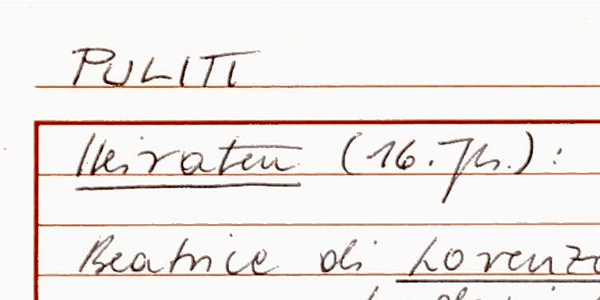 PULITI
Heiraten (16. Jh.):
Beatrice di Lorenzo